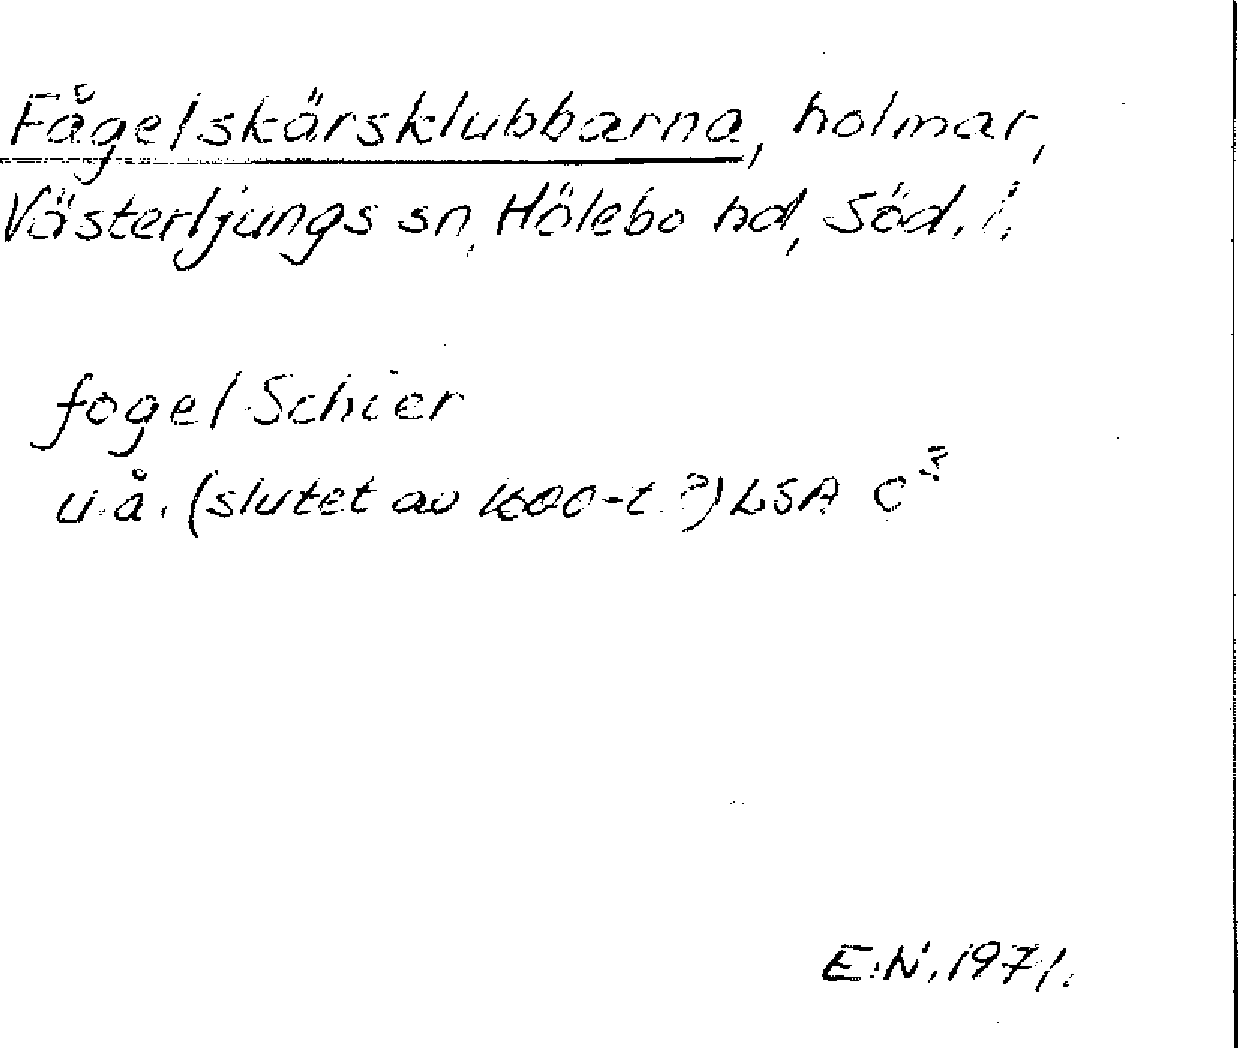 Fågelskärsklubbarna, holmar,
Västerljungs sn, Hölebo hd, Söd. l.
fogel Schier
u.å. (slutet av 1600-t.?) LSA C³
E.N. 1971.